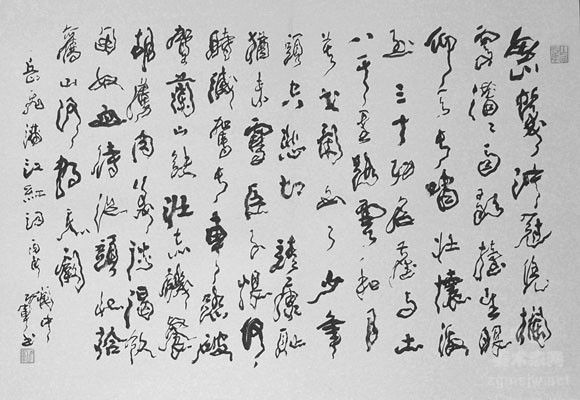 怒髮衝冠凭欄
處瀟々雨歇擡望眼
仰天長嘯壯懷激
烈三十功名塵与土
八千里路雲和月
莫等閑白了少年
頭空悲切靖康恥
猶未雪臣子恨何
時滅駕長車踏破
賀蘭山缺壯志飢餐
胡虜肉笑談渴飲
匈奴血待從頭收拾
舊山河朝天闕
岳飛滿江紅詞
軍书